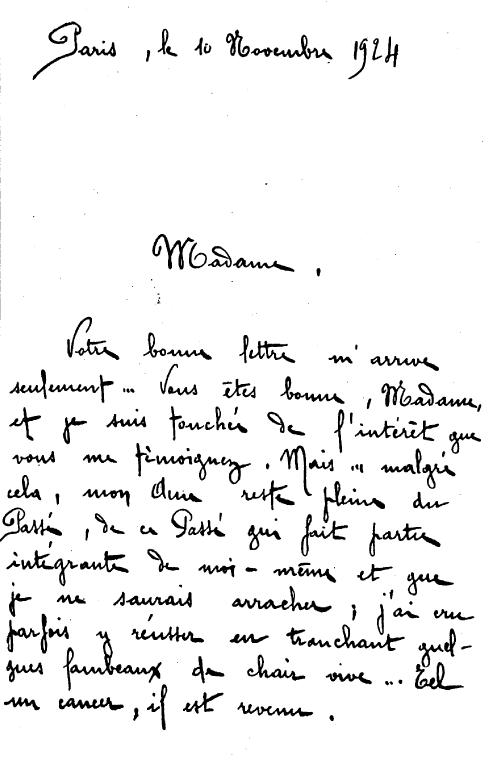 Paris, le 10 Novembre 1924
Madame.
Votre bonne lettre m'arrive
seulement... Vous êtes bonne, Madame,
et je suis touchée de l'intérêt que
vous me témoignez. Mais... malgré
cela, mon Ame reste pleine du
Passé, de ce Passé qui fait partie
intégrante de moi-même et que
je ne saurais arracher; j'ai cru
parfois y réussir en tranchant quel-
ques lambeaux de chair vive... Tel
un cancer, il est revenu.